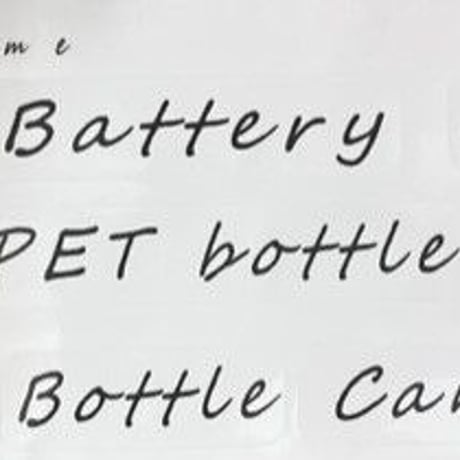 me
Battery
PET bottle
Bottle